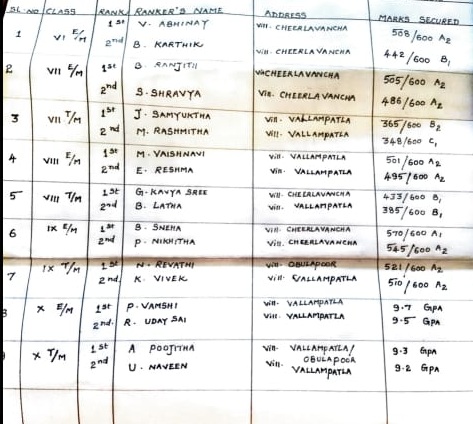 SL. NO CLASS RANK RANKER'S NAME ADDRESS MARKS SECURED
1 VI E/M 1st V. ABHINAY Vill. CHEERLAVANCHA 508/600 A2
2nd B. KARTHIK Vill. CHEERLAVANCHA 442/600 B1
2 VII E/M 1st B. RANJITH Vill CHEERLAVANCHA 505/600 A2
2nd S. SHRAVYA Vill. CHEERLAVANCHA 486/600 A2
3 VII T/M 1st J. SAMYUKTHA Vill. VALLAMPATLA 365/600 B2
2nd M. RASHMITHA Vill. VALLAMPATLA 348/600 C1
4 VIII E/M 1st M. VAISHNAVI Vill. VALLAMPATLA 501/600 A2
2nd E. RESHMA Vill. VALLAMPATLA 495/600 A2
5 VIII T/M 1st G. KAVYA SREE Vill. CHEERLAVANCHA 433/600 B1
2nd B. LATHA Vill. VALLAMPATLA 385/600 B1
6 IX E/M 1st B. SNEHA Vill. CHEERLAVANCHA 570/600 A1
2nd P. NIKHITHA Vill. CHEERLAVANCHA 545/600 A2
7 IX T/M 1st N. REVATHI Vill. OBULAPOOR 521/600 A2
2nd. K. VIVEK Vill. VALLAMPATLA 510/600 A2
8 X E/M 1st P. VAMSHI Vill. VALLAMPATLA 9.7 GPA
2nd. R. UDAY SAI Vill. VALLAMPATLA 9.5 GPA
X T/M 1st A POOJITHA Vill. VALLAMPATLA/ 9.3 GPA
OBULAPOOR
2nd U. NAVEEN Vill. VALLAMPATLA 9.2 GPA